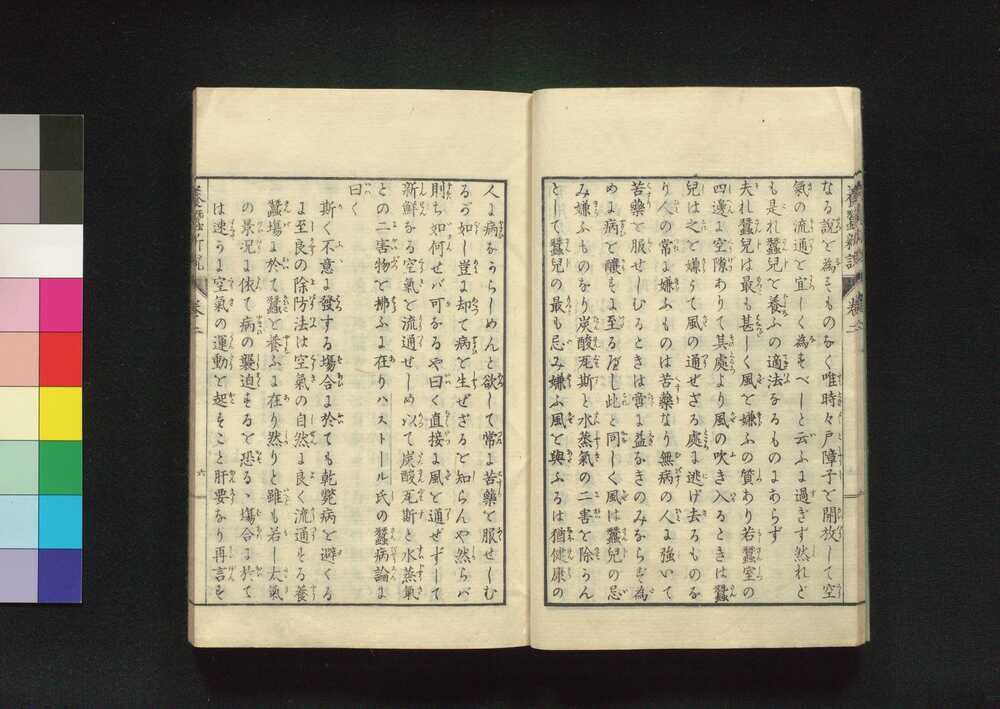 なる説を為すものなく唯時々戸障子を開放して空
氣の流通を宜しく為すべしと云ふに過ぎず然れど
も是れ蠶兒を養ふの適法なるものにあらず
夫れ蠶兒は最も甚しく風を嫌ふの質あり若蠶室の
四邊に空隙ありて其處より風の吹き入るときは蠶
兒は之を嫌うて風の通ぜざる處に逃げ去るものな
り人の常に嫌ふものは苦藥なり無病の人に強いて
苦藥を服せしむるときは啻に益なきのみならず為
めに病を釀すに至るべし此と同しく風は蠶兒の忌
み嫌ふものなり炭酸瓦斯と水蒸氣の二害を除かん
として蠶兒の最も忌み嫌ふ風を與ふるは猶健康の
人に病なからしめんと欲して常に苦藥を服せしむ
るが如し豈に却て病を生ぜざるを知らんや然らバ
則ち如何せバ可なるや曰く直接に風を通ぜずして
新鮮なる空氣を流通せしめ以て炭酸瓦斯と水蒸氣
との二害物を拂ふに在りハストール氏の蠶病論に
曰く
斯く不意に發する塲合に於ても乾斃病を避くる
に至良の除防法は空氣の自然に良く流通する養
蠶塲に於て蠶を養ふに在り然りと雖も若し大氣
の景況に依て病の襲迫するを恐るゝ塲合に於て
は速かに空氣の運動を起すこと肝要なり再言す
養蠶新説
卷二
六